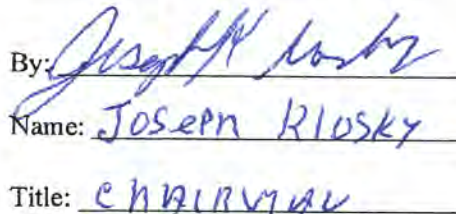 By: Joseph Klosky
Name: Joseph Klosky
Title: CHAIRMAN